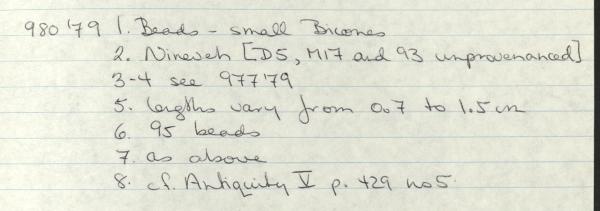 980'79 1. Beads - small Bicones
2. Nineveh [D5, M17 and 93 unprovenanced]
3-4 see 977'79
5. lengths vary from 0.7 to 1.5 cm
6. 95 beads
7. as above
8. cf. Antiquity V p. 429 no 5.